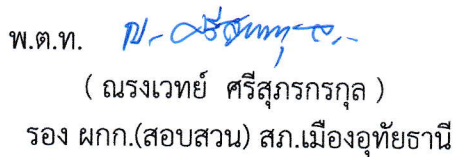 พ.ต.ท.
( ณรงเวทย์ ศรีสุภรกรกุล )
รอง ผกก.(สอบสวน) สภ.เมืองอุทัยธานี